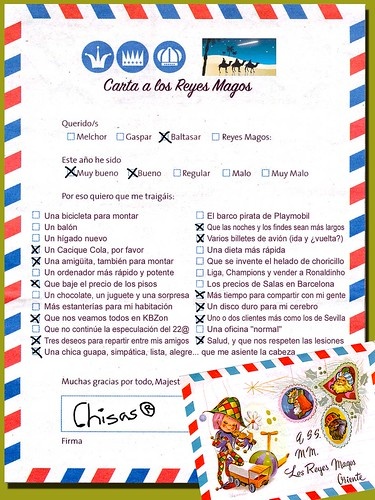 Carta a los Reyes Magos
Querido/s
Melchor Gaspar Baltasar Reyes Magos:
Este año he sido
Muy bueno Bueno Regular Malo Muy Malo
Por eso quiero que me traigáis:
Una bicicleta para montar
Un balón
Un hígado nuevo
Un Cacique Cola, por favor
Una amigüita, también para montar
Un ordenador más rápido y potente
Que baje el precio de los pisos
Un chocolate, un juguete y una sorpresa
Más estanterías para mi habitación
Que nos veamos todos en KBZon
Que no continúe la especulación del 22@
Tres deseos para repartir entre mis amigos
Una chica guapa, simpática, lista, alegre... que me asiente la cabeza
El barco pirata de Playmobil
Que las noches y los findes sean más largos
Varios billetes de avión (ida y ¿vuelta?)
Una dieta más rápida
Que se invente el helado de choricillo
Liga, Champions y vender a Ronaldinho
Los precios de Salas en Barcelona
Más tiempo para compartir con mi gente
Un disco duro para mi cerebro
Uno o dos clientes más como los de Sevilla
Una oficina "normal"
Salud, y que nos respeten las lesiones
Muchas gracias por todo, Majest
Chisas®
Firma
A S.S.
M.M.
Los Reyes Magos
Oriente